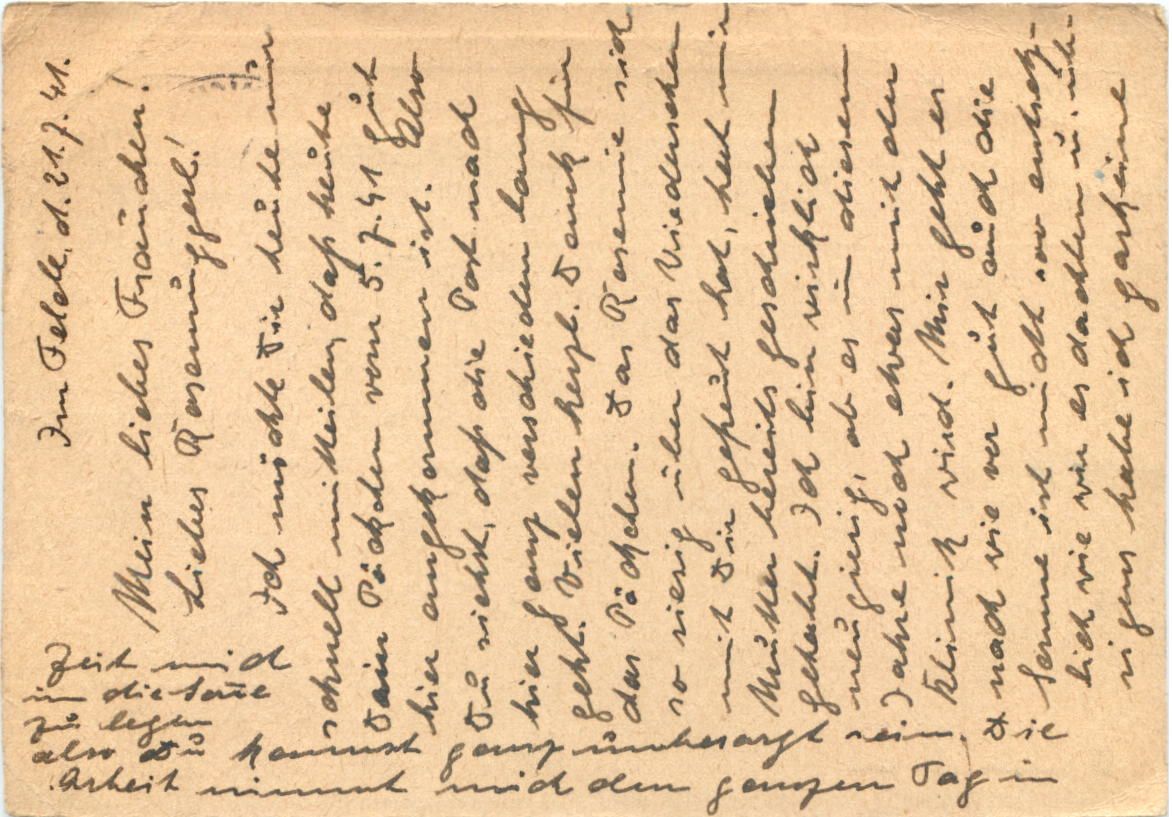 Im Felde, d. 21.7.41.
Mein liebes Frauchen!
Liebes Rosemuggel!
Ich möchte Dir heute nur
schnell mitteilen, daß heute
Dein Päckchen vom 5.7.41 gut
hier angekommen ist. Also
Du siehst, daß die Post nach
hier ganz verschieden lang
geht. Vielen herzl. Dank für
das Päckchen. Daß Rosemie sich
so riesig über das Wiedersehen
mit Dir gefreut hat, hat mir
Mutter bereits geschrieben
gehabt. Ich bin wirklich
neugierig, ob es in diesem
Jahre noch etwas mit der
Klinik wird. Mir geht es
nach wie vor gut auch die
Sonne ist nicht soo entsetz-
lich wie wir es dachten u. üb-
rigens habe ich gar keine
Zeit mich
in die Sonne
zu legen
also Du kannst ganz unbesorgt sein. Die
Arbeit nimmt mich den ganzen Tag in